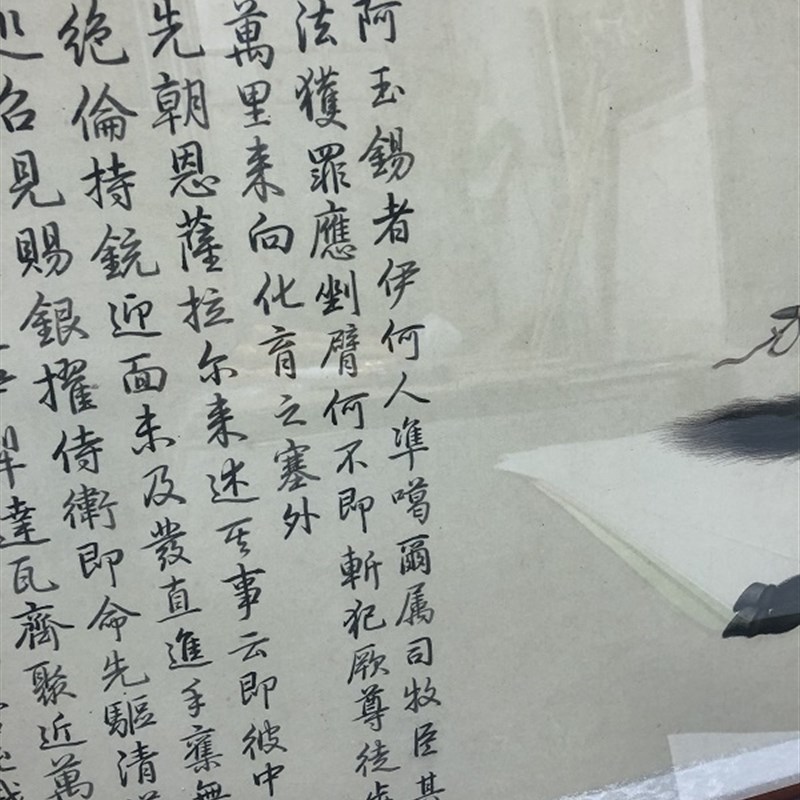 阿玉錫者伊何人準噶爾属司牧臣其
法獲罪應剉臂何不即斬犯厥尊徒步
萬里来向化育之塞外
先朝恩薩拉尔来述其事云即彼中
絶倫持銃迎面未及發直進手奪無
召見賜銀擢侍衛即命先驅清
達瓦齊聚近萬